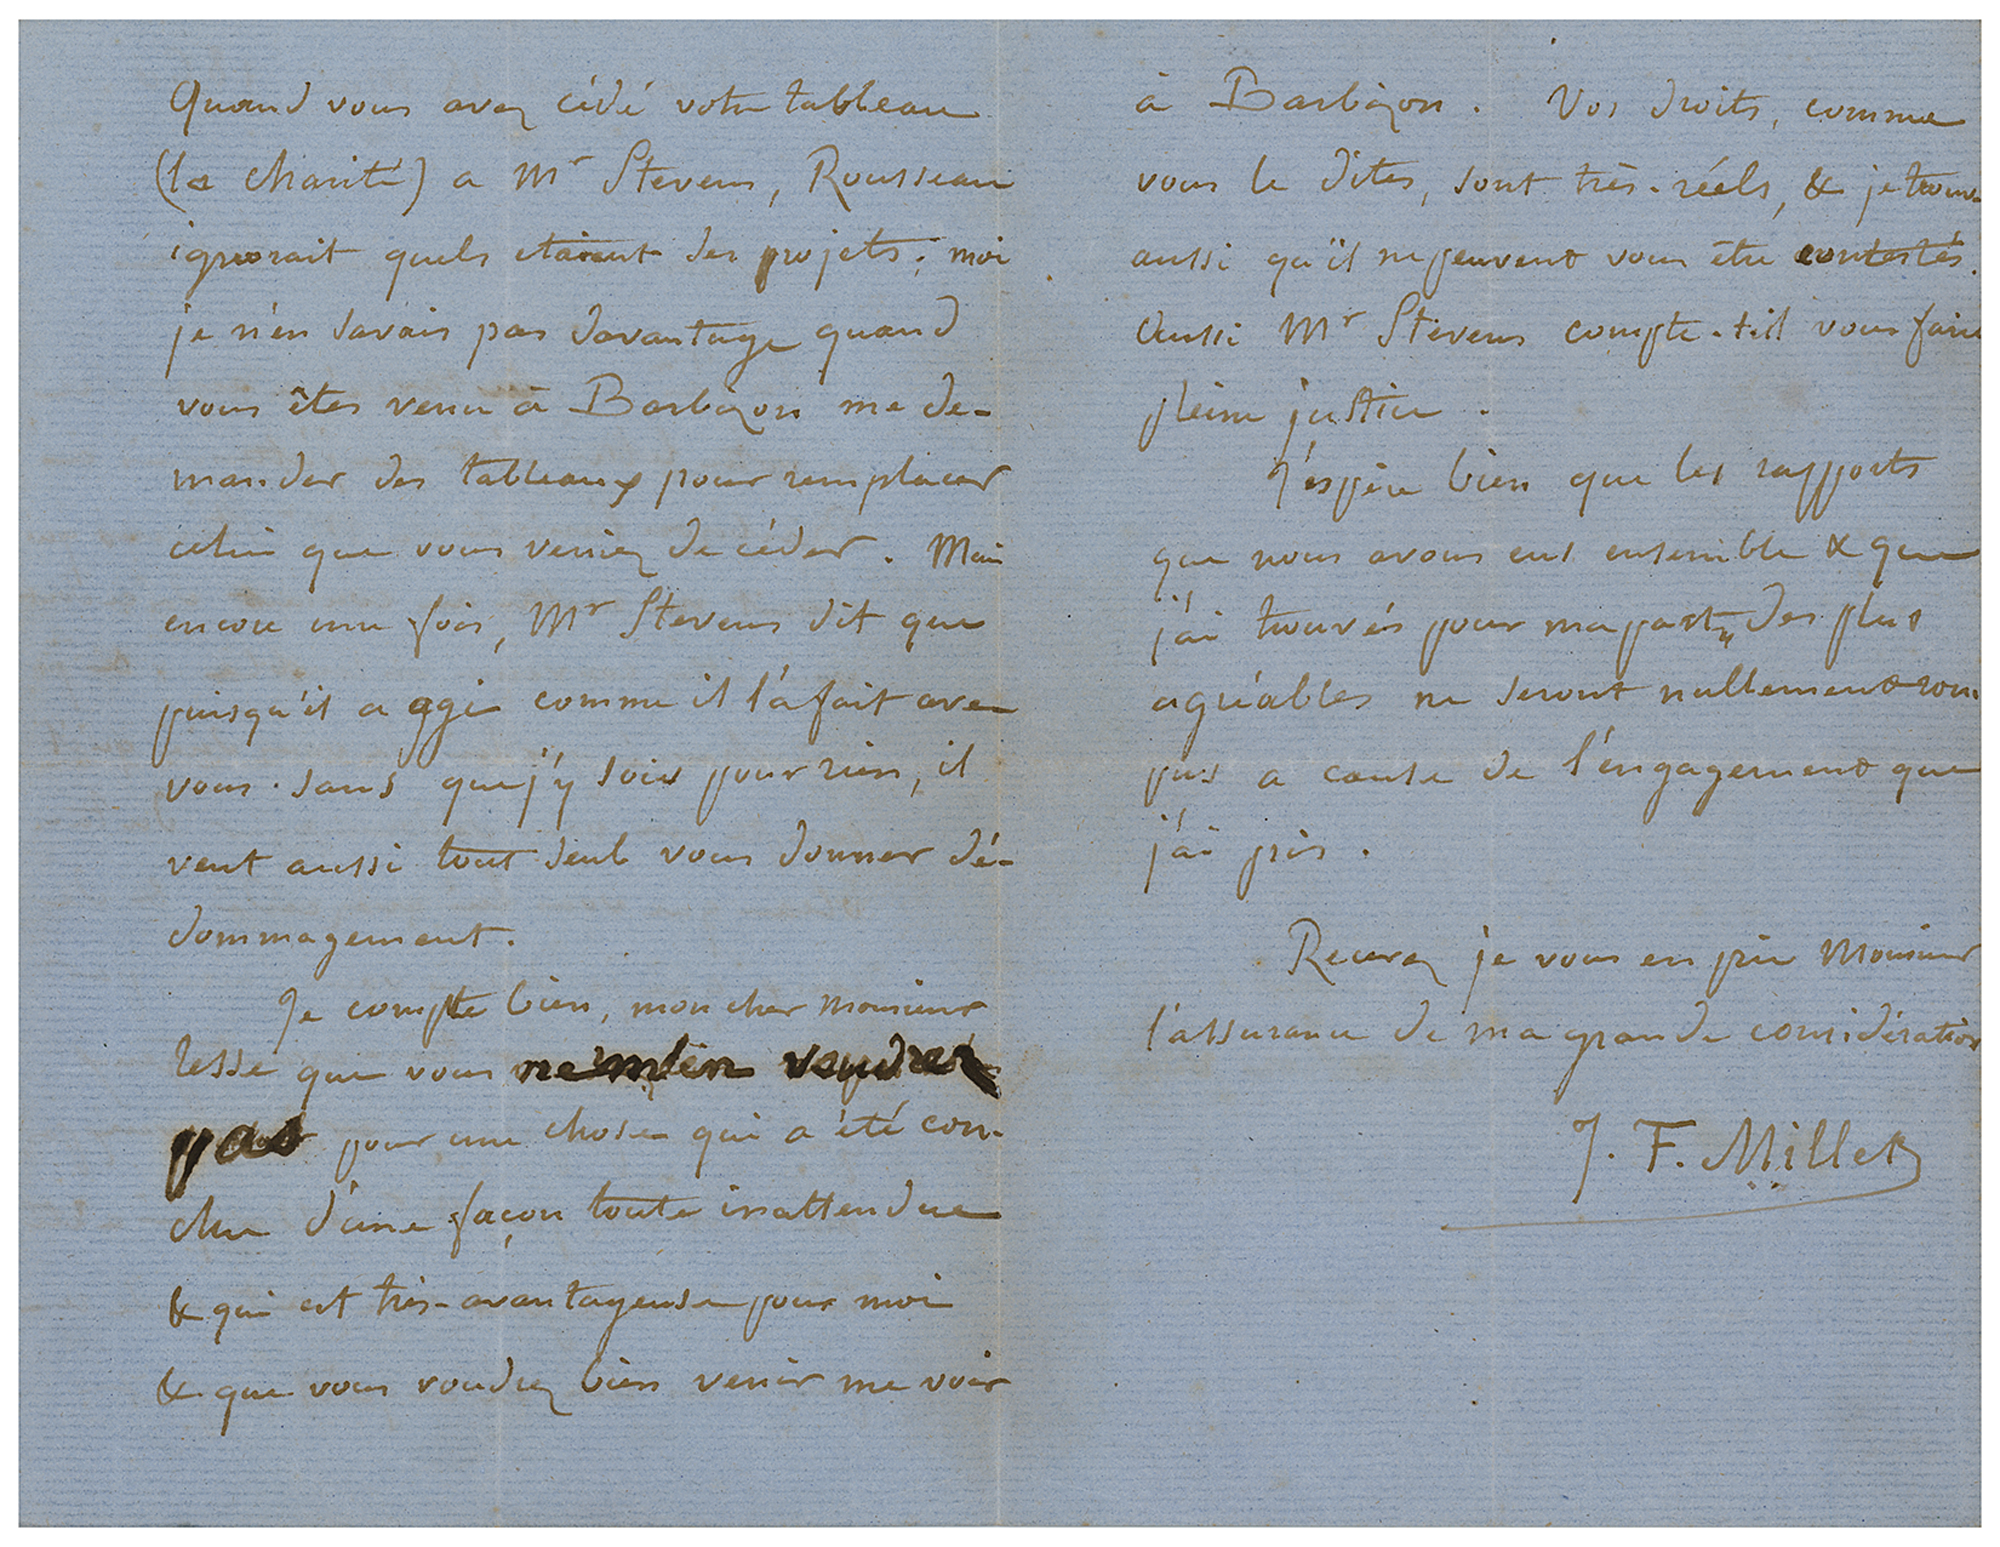 Quand vous avez cédé votre tableau
(la charité) a Mr Stevens, Rousseau
ignorait quels etaient ses projets; moi
je n'en savais pas davantage quand
vous êtes venu à Barbizon me de-
mander des tableaux pour remplacer
celui que vous veniez de céder. Mais
encore une fois, Mr Stevens dit que
puisqu'il a agi comme il l'a fait avec
vous sans que j'y sois pour rien, il
veut aussi tout seul vous donner dé-
dommagement.
Je compte bien, mon cher Monsieur
Tesse que vous ne m'en voudrez
pas pour une chose qui a été con-
clue d'une façon toute inattendue
& qui est très-avantageuse pour moi
& que vous voudrez bien venir me voir
à Barbizon. Vos droits, comme
vous le dites, sont très-réels, & je trouve
aussi qu'il ne peuvent vous être contestés.
Aussi Mr Stevens compte-t-il vous faire
pleine justice.
J'espère bien que les rapports
que nous avons eus ensemble & que
j'ai trouvés pour ma part, des plus
agréables ne seront nullement rom-
pus a cause de l'engagement que
j'ai pris.
Recevez je vous en prie Monsieur
l'assurance de ma grande considération
J. F. Millet